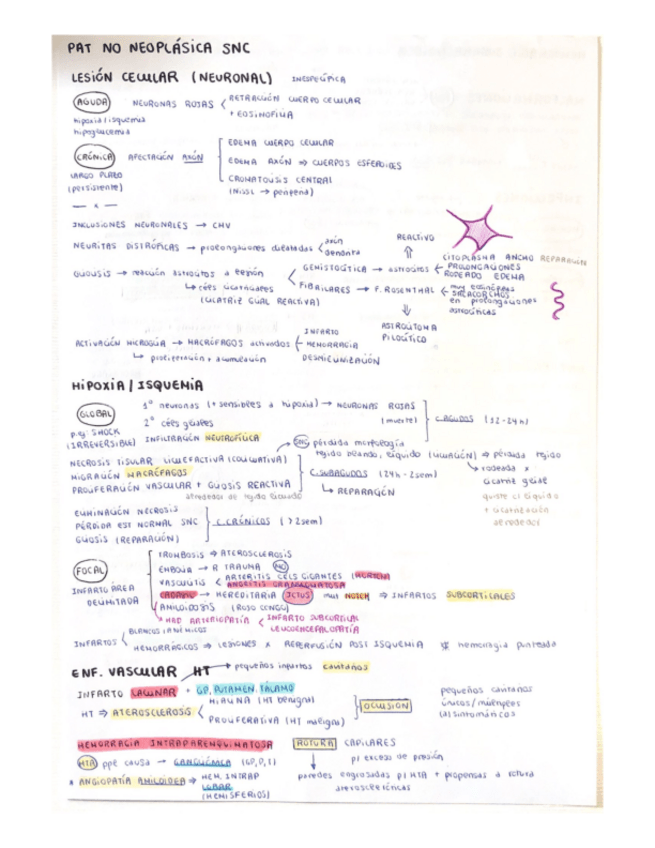 PAT NO NEOPLÁSICA SNC
LESIÓN CELULAR (NEURONAL) INESPECÍFICA
AGUDA NEURONAS ROJAS < RETRACCIÓN CUERPO CELULAR
+ EOSINOFILIA
hipoxia/isquemia
hipoglucemia
CRÓNICA AFECTACIÓN AXÓN
LARGO PLAZO
(persistente)
EDEMA CUERPO CELULAR
EDEMA AXÓN ⇒ CUERPOS ESFEROIDES
CROMATOLISIS CENTRAL
(NISSL → periferia)
INCLUSIONES NEURONALES → CMV
NEURITAS DISTRÓFICAS → prolongaciones dilatadas < axón
dendrita
REACTIVO
GLIOSIS → reacción astrocitos a lesión
↳ céls cicatriciales
(CICATRIZ GLIAL REACTIVA)
GEMISTOCÍTICA → astrocitos
CITOPLASMA ANCHO REPARACIÓN
PROLONGACIONES
RODEADO EDEMA
FIBRILARES → F. ROSENTHAL
muy eosinófilas
SACACORCHOS
en prolongaciones
astrocíticas
ASTROCITOMA
PILOCÍTICO
ACTIVACIÓN MICROGLÍA → MACRÓFAGOS activados
↳ proliferación + acumulación
INFARTO
HEMORRAGIA
DESMIELINIZACIÓN
HIPOXIA / ISQUEMIA
GLOBAL
p.ej. SHOCK
(IRREVERSIBLE)
1º neuronas (+ sensibles a hipoxia) → NEURONAS ROJAS
(muerte)
2º céls gliales
INFILTRACIÓN NEUTROFÍLICA
C. AGUDOS (12-24h)
NECROSIS TISULAR LICUEFACTIVA (COLICUATIVA)
MIGRACIÓN MACRÓFAGOS
PROLIFERACIÓN VASCULAR + GLIOSIS REACTIVA
alrededor de tejido licuado
SNC pérdida morfología
tejido blando, líquido (LICUACIÓN) ⇒ pérdida tejido
C. SUBAGUDOS (24h - 2sem)
↳ REPARACIÓN
↳ rodeada x
cicatriz glial
quiste c/ líquido
+ cicatrización
alrededor
ELIMINACIÓN NECROSIS
PÉRDIDA EST NORMAL SNC
GLIOSIS (REPARACIÓN)
C. CRÓNICOS (>2sem)
FOCAL
INFARTO ÁREA
DELIMITADA
TROMBOSIS ⇒ ATEROSCLEROSIS
EMBOLIA → R TRAUMA NO
VASCULITIS < ARTERITIS CÉLS GIGANTES (HORTON)
ANGEÍTIS GRANULOMATOSA
CADASIL → HEREDITARIA ICTUS mut NOTCH ⇒ INFARTOS SUBCORTICALES
AMILOIDOSIS (ROJO CONGO)
* HAD ARTERIOPATÍA < INFARTO SUBCORTICAL
LEUCOENCEFALOPATÍA
INFARTOS < BLANCOS/ANÉMICOS
HEMORRÁGICOS ⇒ LESIONES X REPERFUSIÓN POST ISQUEMIA hemorragia punteada
ENF. VASCULAR HT → pequeños infartos cavitarios
INFARTO LACUNAR + GP, PUTAMEN, TÁLAMO
HT ⇒ ATEROSCLEROSIS < HIALINA (HT benigna)
PROLIFERATIVA (HT maligna)
OCLUSIÓN
pequeños cavitarios
únicos/múltiples
(a)sintomáticos
HEMORRAGIA INTRAPARENQUIMATOSA ROTURA CAPILARES
p/ exceso de presión
HTA ppt causa → GANGLIÓNICA (GP, P, T)
paredes engrosadas p/ HTA + propensas a rotura
ateroscleróticas
* ANGIOPATÍA AMILOIDEA ⇒ HEM. INTRAP
LOBAR
(HEMISFERIOS)